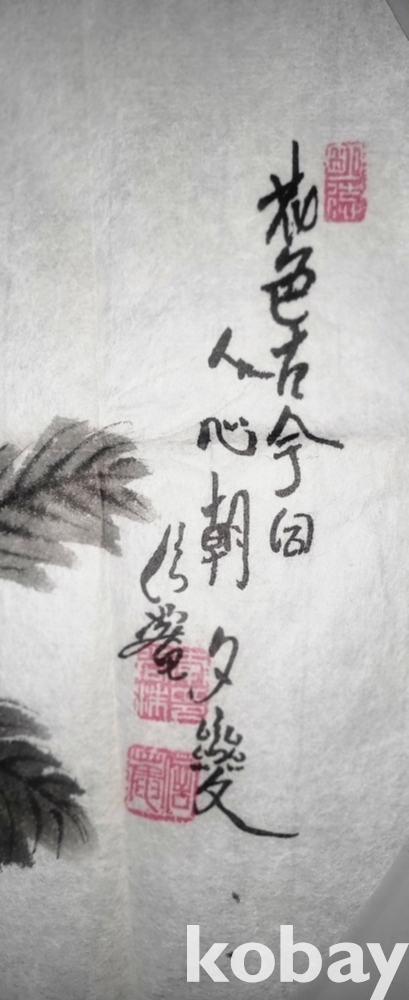 花色古今同
人心朝夕變
信
kobay